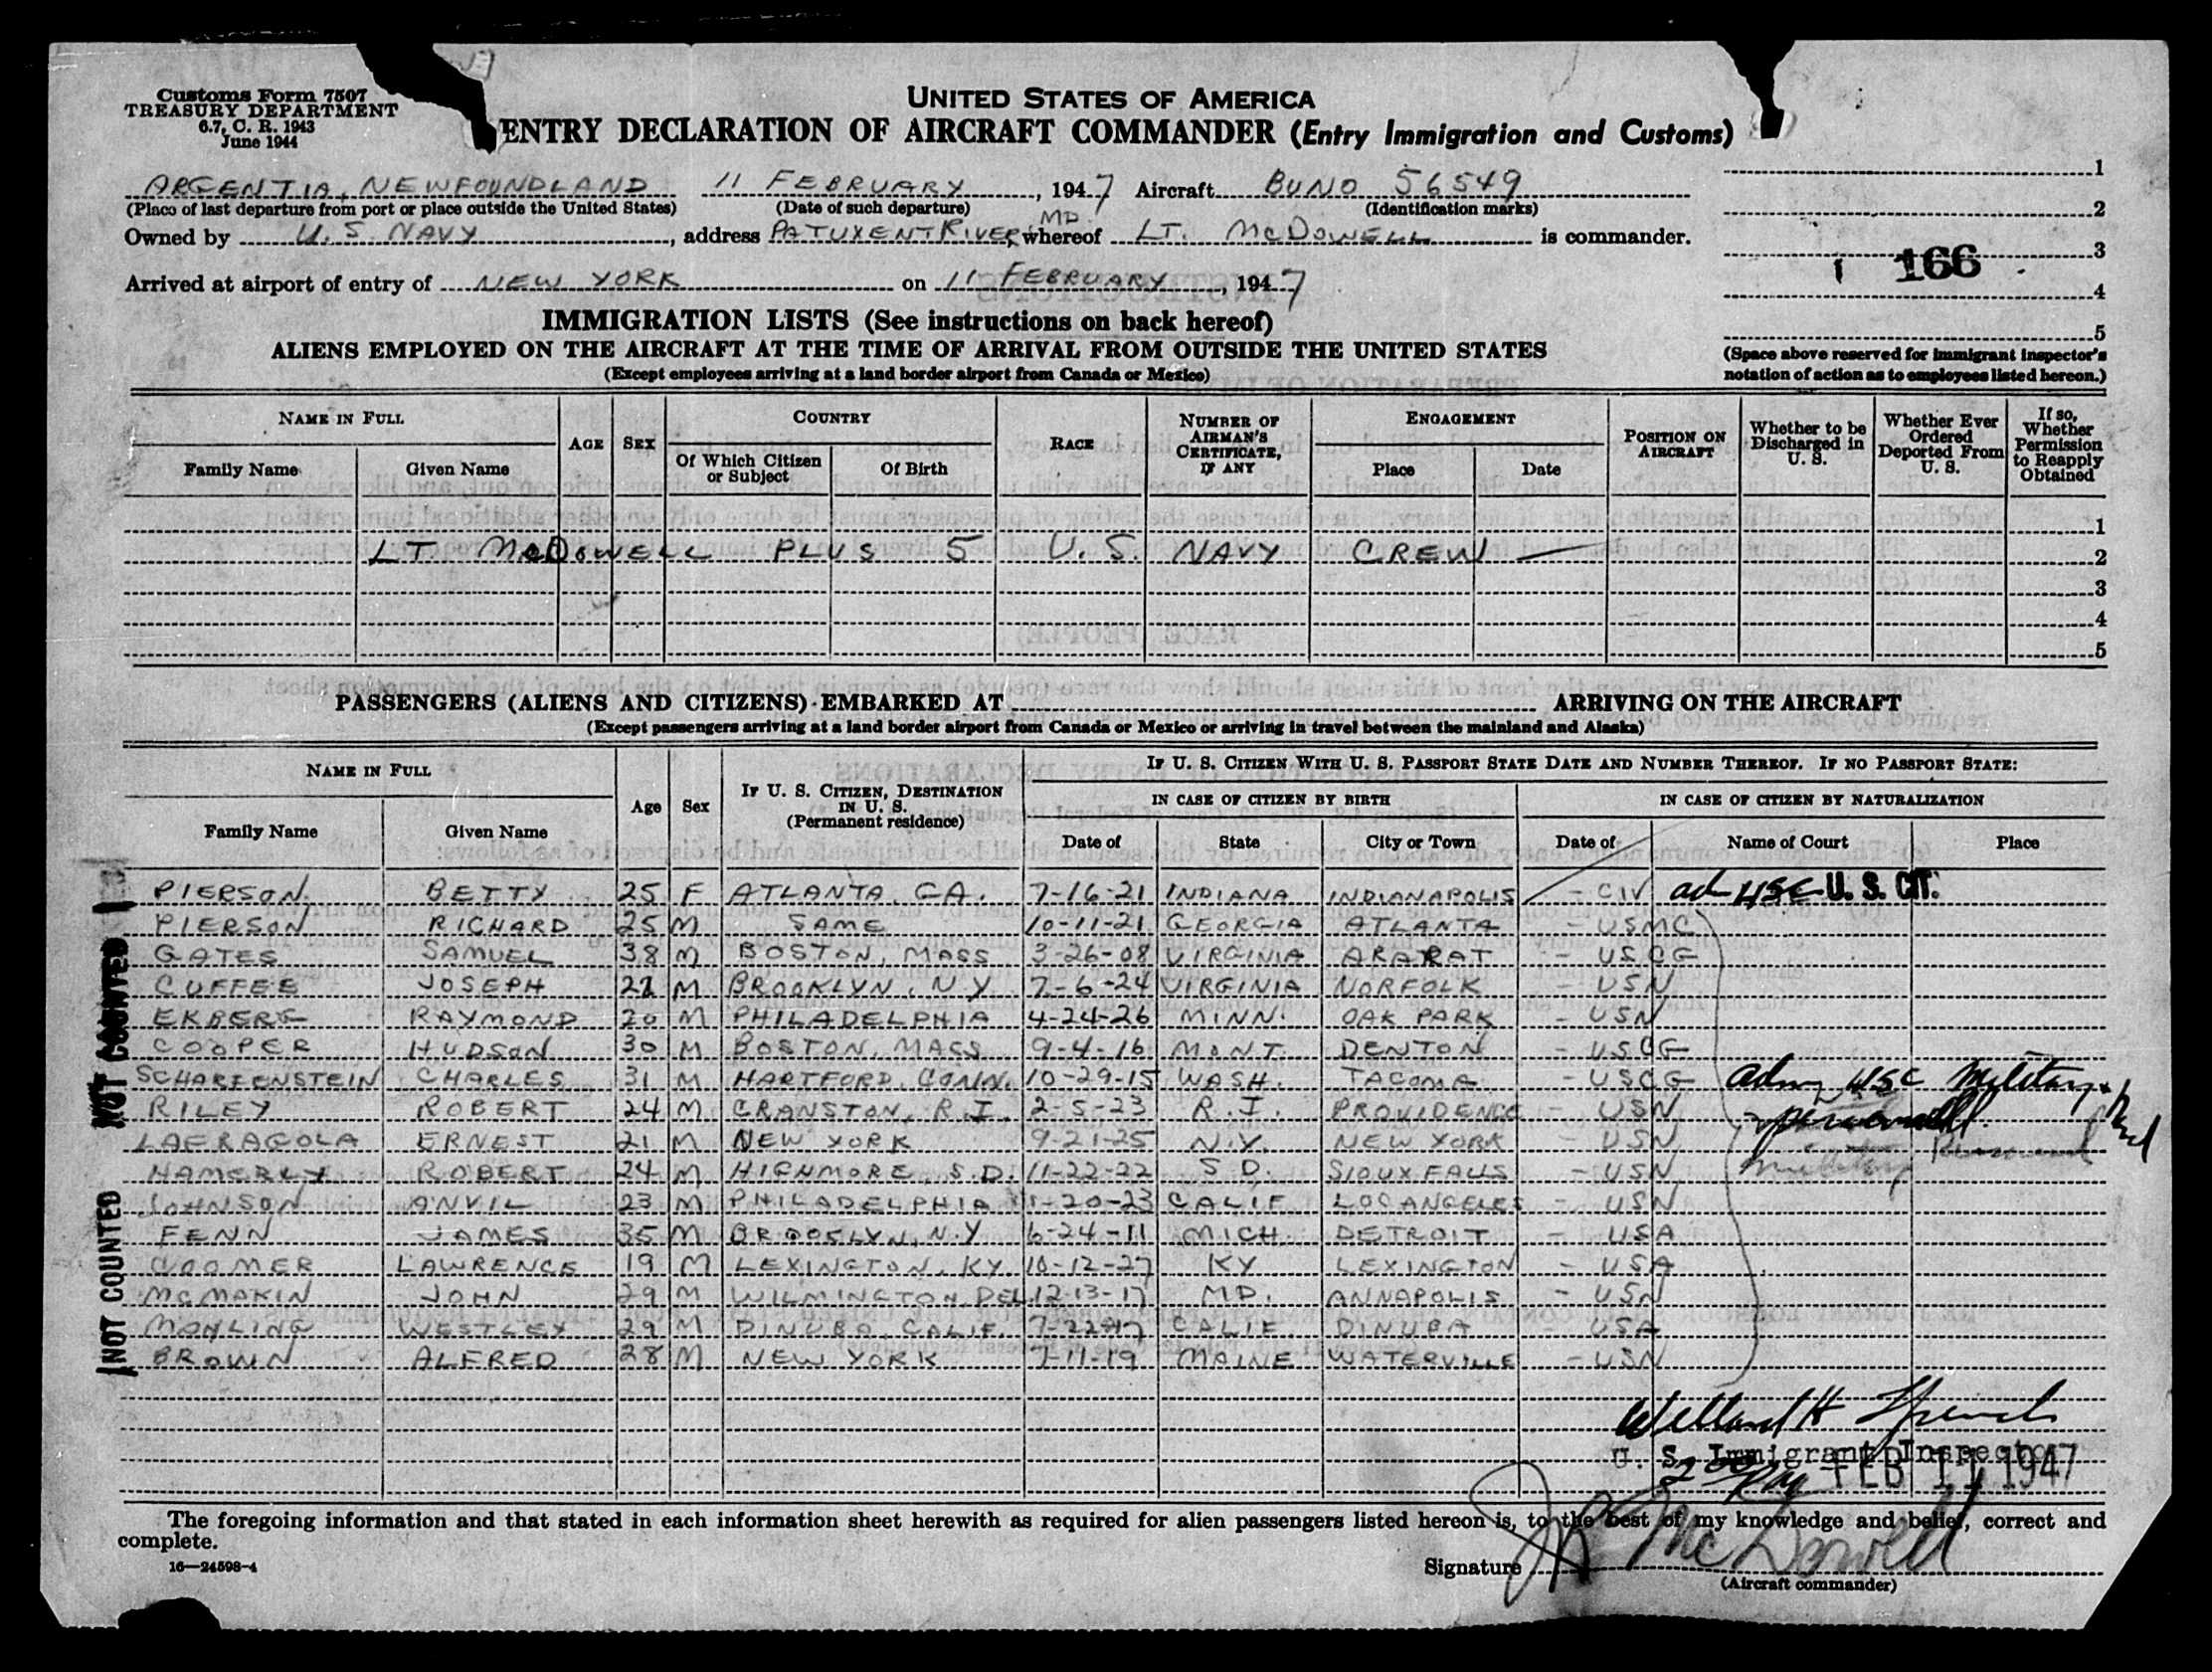 Customs Form 7507
TREASURY DEPARTMENT
6.7, C. R. 1943
June 1944
UNITED STATES OF AMERICA
ENTRY DECLARATION OF AIRCRAFT COMMANDER (Entry Immigration and Customs)
ARGENTIA, NEWFOUNDLAND 11 FEBRUARY, 1947 Aircraft BUNO 56549
(Place of last departure from port or place outside the United States) (Date of such departure) (Identification marks)
Owned by U. S. NAVY, address PATUXENT RIVER, MD whereof LT. McDOWELL is commander.
Arrived at airport of entry of NEW YORK on 11 FEBRUARY, 1947
1
2
3
166
4
5
(Space above reserved for immigrant inspector's notation of action as to employees listed hereon.)
IMMIGRATION LISTS (See instructions on back hereof)
ALIENS EMPLOYED ON THE AIRCRAFT AT THE TIME OF ARRIVAL FROM OUTSIDE THE UNITED STATES
(Except employees arriving at a land border airport from Canada or Mexico)
NAME IN FULL AGE SEX COUNTRY RACE NUMBER OF AIRMAN'S CERTIFICATE, IF ANY ENGAGEMENT POSITION ON AIRCRAFT Whether to be Discharged in U. S. Whether Ever Ordered Deported From U. S. If so, Whether Permission to Reapply Obtained
Family Name Given Name Of Which Citizen or Subject Of Birth Place Date
1
LT McDOWELL PLUS 5 U. S. NAVY CREW — 2
3
4
5
PASSENGERS (ALIENS AND CITIZENS) EMBARKED AT ARRIVING ON THE AIRCRAFT
(Except passengers arriving at a land border airport from Canada or Mexico or arriving in travel between the mainland and Alaska)
NAME IN FULL Age Sex IF U. S. CITIZEN, DESTINATION IN U. S. (Permanent residence) IF U. S. CITIZEN WITH U. S. PASSPORT STATE DATE AND NUMBER THEREOF. IF NO PASSPORT STATE:
IN CASE OF CITIZEN BY BIRTH IN CASE OF CITIZEN BY NATURALIZATION
Family Name Given Name Date of State City or Town Date of Name of Court Place
PIERSON BETTY 25 F ATLANTA, GA. 7-16-21 INDIANA INDIANAPOLIS - CIV ad USC U. S. CIT.
PIERSON RICHARD 25 M SAME 10-11-21 GEORGIA ATLANTA - USMC
GATES SAMUEL 38 M BOSTON, MASS 3-26-08 VIRGINIA ARARAT - USCG
CUFFEE JOSEPH M BROOKLYN, N Y 7-6-24 VIRGINIA NORFOLK - USN
EKBERG RAYMOND 20 M PHILADELPHIA 4-24-26 MINN. OAK PARK - USN
COOPER HUDSON 30 M BOSTON, MASS 9-4-16 MONT. DENTON - USCG
SCHARFENSTEIN CHARLES 31 M HARTFORD, CONN. 10-29-15 WASH. TACOMA - USCG adm USC Military
RILEY ROBERT 24 M CRANSTON, R.I. 2-5-23 R.I. PROVIDENCE - USN personnell
LAFRAGOLA ERNEST 21 M NEW YORK 9-21-25 N.Y. NEW YORK - USN
HAMERLY ROBERT 24 M HIGHMORE, S.D. 11-22-22 S D. SIOUX FALLS - USN military Personnel
JOHNSON ANVIL 23 M PHILADELPHIA 1-20-23 CALIF LOS ANGELES - USN
FENN JAMES 35 M BROOSLYN, N.Y 6-24-11 MICH. DETROIT - USA
COOMER LAWRENCE 19 M LEXINGTON, KY 10-12-27 KY LEXINGTON - USA
McMAKIN JOHN 29 M WILMINGTON, DEL 12-13-17 MD. ANNAPOLIS - USN
MAHLING WESTLEY 29 M DINUBA, CALIF. 7-22-17 CALIF. DINUBA - USA
BROWN ALFRED 28 M NEW YORK 1-11-19 MAINE WATERVILLE - USN
NOT COUNTED
NOT COUNTED
Welland H French
U. S. Immigrant Inspector
2 00 PM FEB 11 1947
The foregoing information and that stated in each information sheet herewith as required for alien passengers listed hereon is, to the best of my knowledge and belief, correct and
complete.
16—24598-4
Signature McDowell
(Aircraft commander)